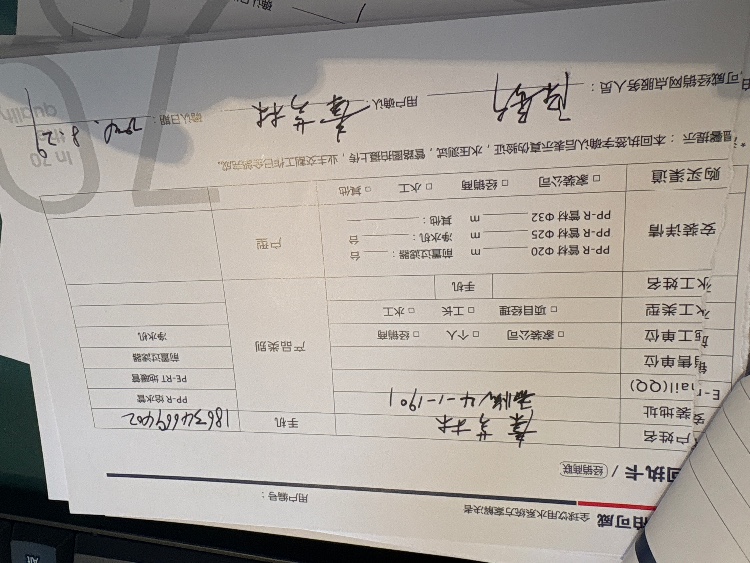 全球饮用水系统方案解决者
用户编号：
回执卡 / 经销商联
户姓名
手机 18634669402
安装地址 4-1-1901
PP-R 给水管
E-mail(QQ)
PE-RT 地暖管
销售单位
产品类别
前置过滤器
施工单位 □ 家装公司 □ 个人 □ 经销商
净水机
水工类型 □ 项目经理 □ 工长 □ 水工
水工姓名 手机
安装详情
PP-R 管材 Φ20 m 前置过滤器： 台
PP-R 管材 Φ25 m 净水机： 台
PP-R 管材 Φ32 m 其他：
户型
购买渠道 □ 家装公司 □ 经销商 □ 水工 □ 其他
*温馨提示：本回执签字确认后表示真伪验证，水压测试，管路图摄拍上传，业主交割工作已全部完成。
可威经销网点服务人员：
用户确认：
确认日期： 8.29
In 70
quality
Alt